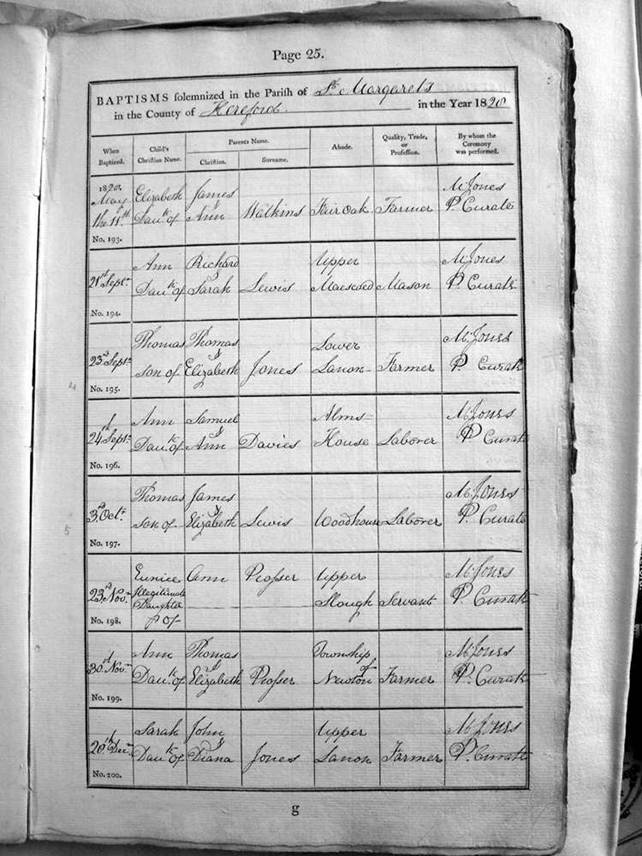 Page 25.
BAPTISMS solemnized in the Parish of St. Margarets
in the County of Hereford in the Year 1820
When Baptized. Child's Christian Name. Parents Name. Christian. Surname. Abode. Quality, Trade, or Profession. By whom the Ceremony was performed.
1820. Elizabeth James M. Jones
May & Watkins Fair Oak Farmer P. Curate
the 11th Dauth of Ann
No. 193.
Ann Richard Upper M. Jones
21st Septr. Dauth of & Sarah Lewis Maescoed Mason P. Curate
No. 194.
Thomas Thomas Lower M. Jones
23d Septr. son of & Elizabeth Jones Lanon Farmer P. Curate
No. 195.
Ann Samuel Alms M. Jones
24 Septr. Dauth of & Ann Davies House Laborer P. Curate
No. 196.
Thomas James M. Jones
3d Octr. son of & Elizabeth Lewis Woodhouse Laborer P. Curate
No. 197.
Eunice Ann Prosser Upper M. Jones
23d Novr. Illegitimate Slough Servant P. Curate
Daughter
of
No. 198.
Ann Thomas Township M. Jones
30 Novr. Dauth of & Elizabeth Prosser of Newton Farmer P. Curate
No. 199.
Sarah John Upper M. Jones
20th Decr. Dauth of & Diana Jones Lanon Farmer P. Curate
No. 200.
g